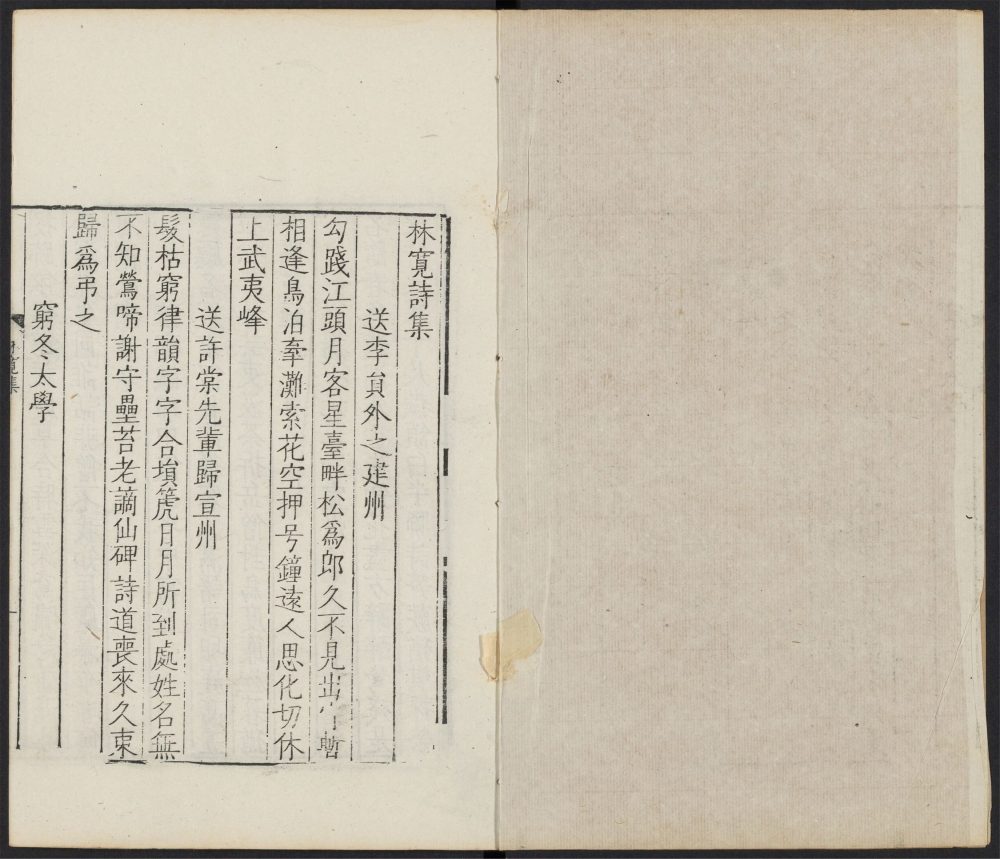 林寬詩集
送李貟外之建州
勾踐江頭月客星臺畔松爲郎久不見出暫
相逢鳥泊牽灘索花空押号鐘逺人思化切休
上武夷峰
送許棠先輩歸宣州
髮枯窮律韻字字合塤箎日月所到處姓名無
不知鶯啼謝守壘苔老謫仙碑詩道喪來久東
歸爲弔之
窮冬太學